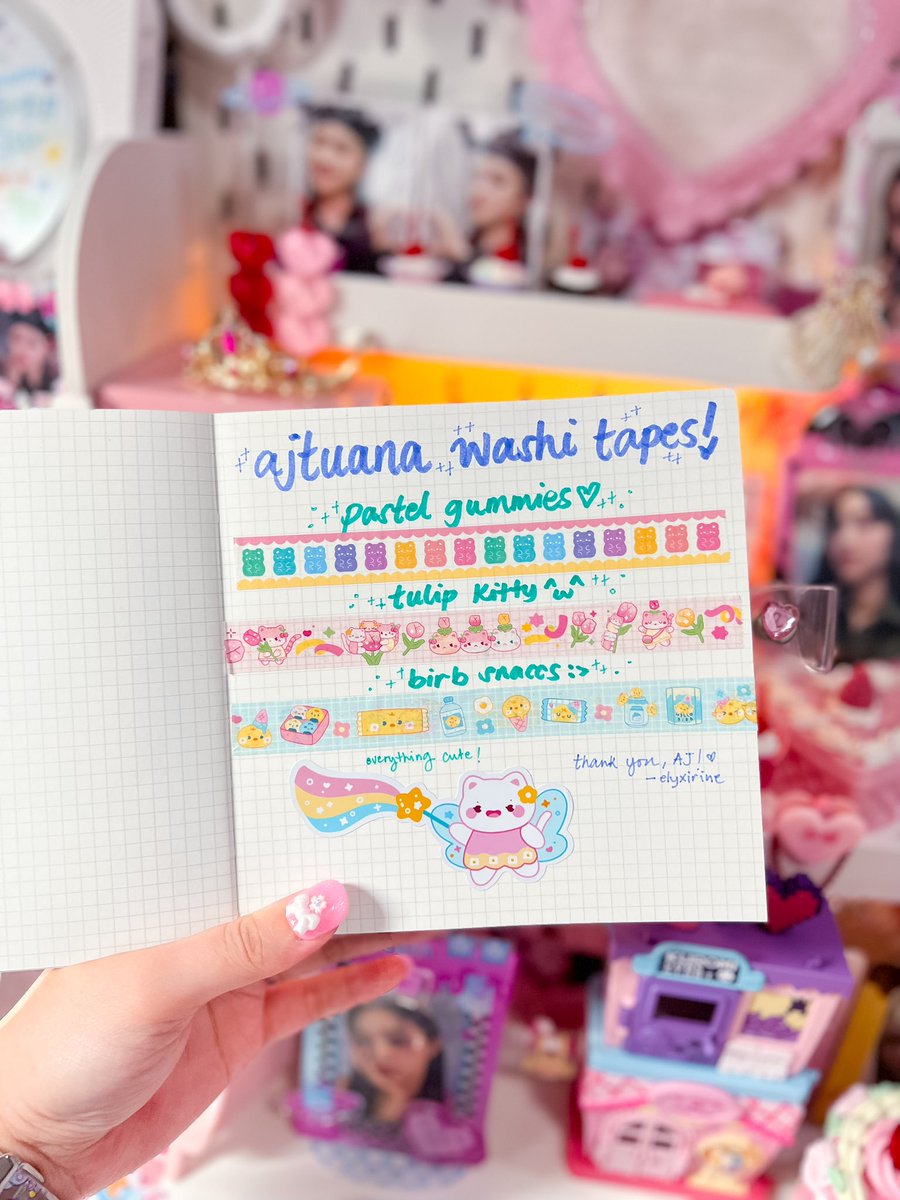 ajtuana washi tapes!
pastel gummies♡
tulip kitty ^w^
birb snaccs :>
everything cute!
thank you, AJ! ♡
- elyxirine